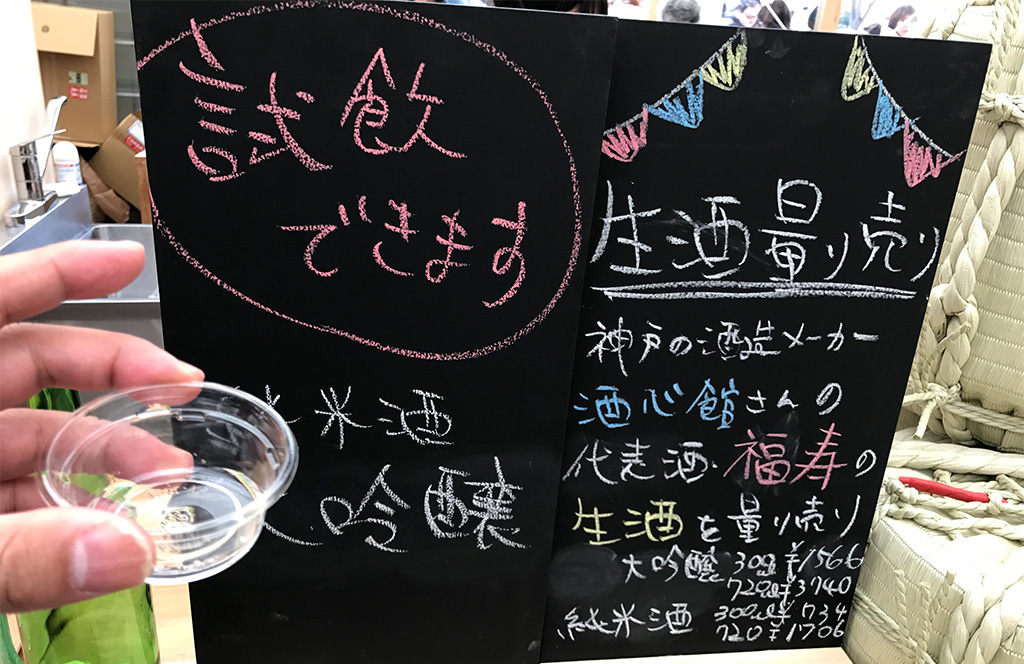 試飲
できます
米酒
吟醸
生酒量り売り
神戸の酒造メーカー
酒心館さんの
代表酒・福寿の
生酒を量り売り
大吟醸 300 ¥1566
720ml¥3740
純米酒 300ml¥734
720¥1706